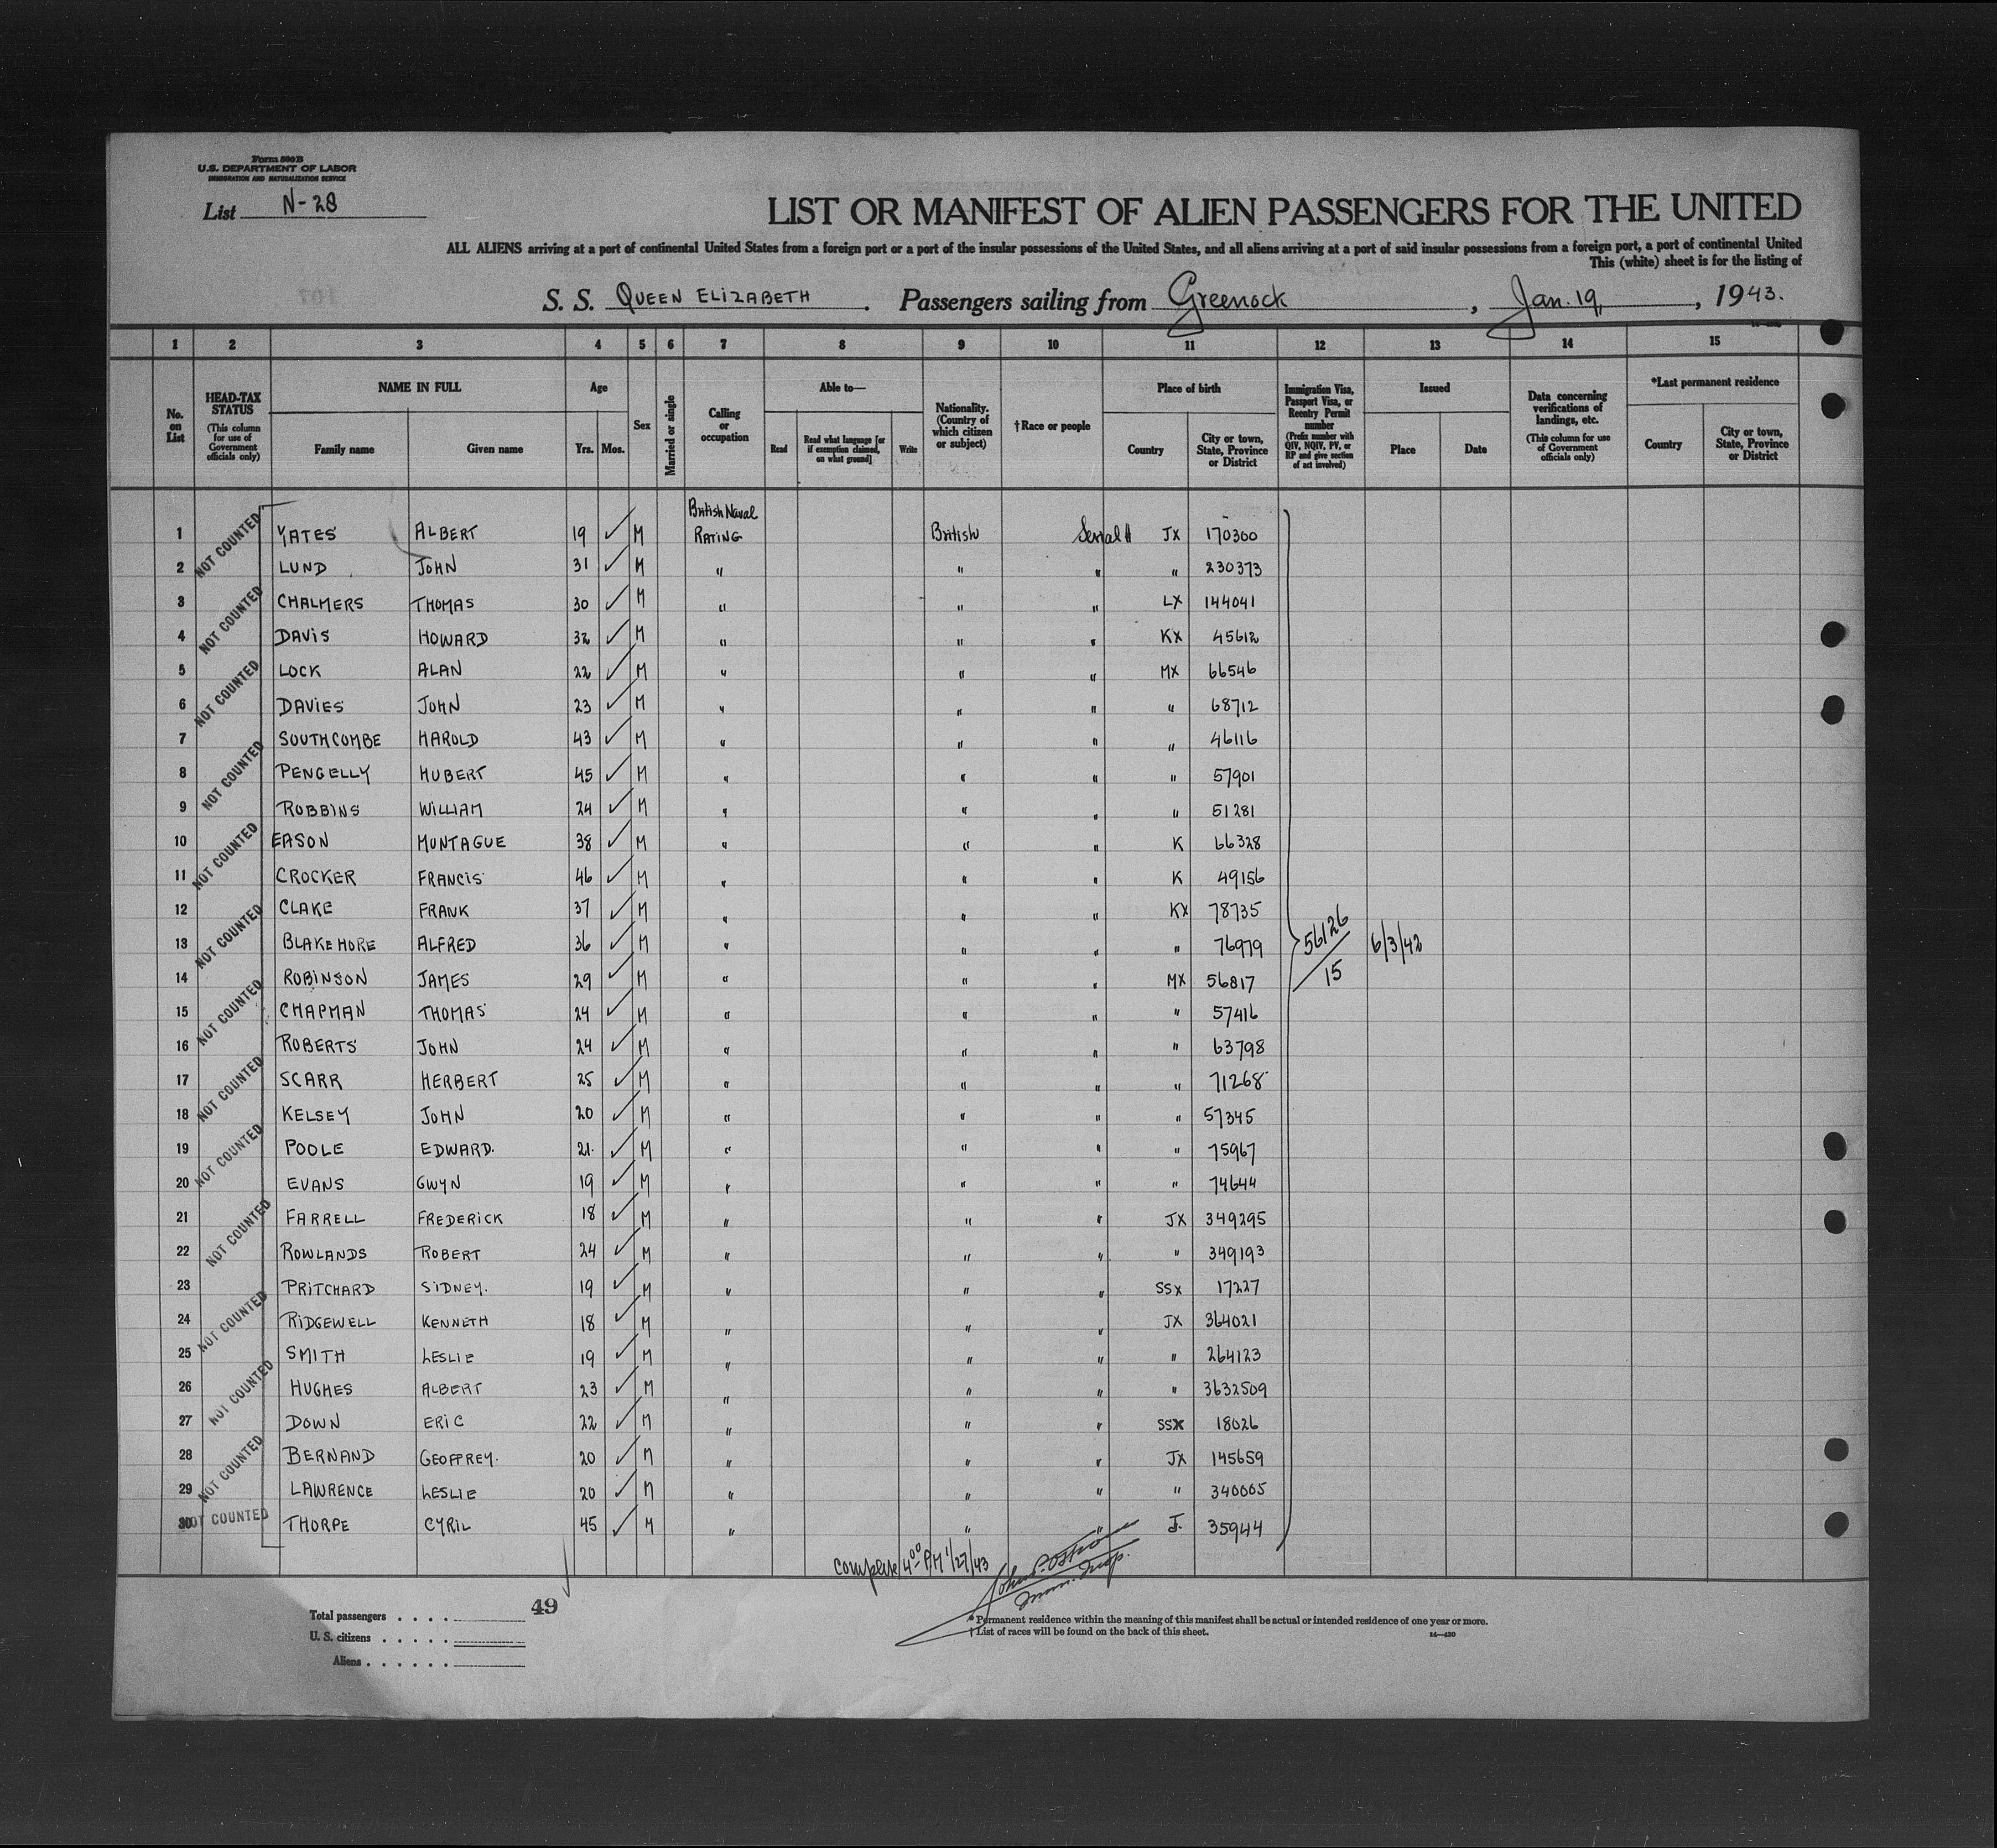 Form 500 B
U.S. DEPARTMENT OF LABOR
IMMIGRATION AND NATURALIZATION SERVICE
List N-28
LIST OR MANIFEST OF ALIEN PASSENGERS FOR THE UNITED
ALL ALIENS arriving at a port of continental United States from a foreign port or a port of the insular possessions of the United States, and all aliens arriving at a port of said insular possessions from a foreign port, a port of continental United
This (white) sheet is for the listing of
S. S. QUEEN ELIZABETH . Passengers sailing from Greenock , Jan. 19, , 1943.
1 2 3 4 5 6 7 8 9 10 11 12 13 14 15
No. on List
HEAD-TAX STATUS (This column for use of Government officials only)
NAME IN FULL Family name Given name
Age Yrs. Mos.
Sex
Married or single
Calling or occupation
Able to— Read Read what language [or if exemption claimed, on what ground] Write
Nationality. (Country of which citizen or subject)
†Race or people
Place of birth Country City or town, State, Province or District
Immigration Visa, Passport Visa, or Reentry Permit number (Prefix number with QIV, NQIV, PV, or RP and give section of act involved)
Issued Place Date
Data concerning verifications of landings, etc. (This column for use of Government officials only)
*Last permanent residence Country City or town, State, Province or District
British Naval
1 NOT COUNTED YATES ALBERT 19 ✓ M RATING British Serial # JX 170300
2 LUND JOHN 31 ✓ M " " " " 230373
3 NOT COUNTED CHALMERS THOMAS 30 ✓ M " " " LX 144041
4 DAVIS HOWARD 32 ✓ M " " " KX 45612
5 NOT COUNTED LOCK ALAN 22 ✓ M " " " MX 66546
6 DAVIES JOHN 23 ✓ M " " " " 68712
7 SOUTHCOMBE HAROLD 43 ✓ M " " " " 46116
8 NOT COUNTED PENGELLY HUBERT 45 ✓ M " " " " 57901
9 ROBBINS WILLIAM 24 ✓ M " " " " 51281
10 NOT COUNTED EASON MUNTAGUE 38 ✓ M " " " K 66328
11 CROCKER FRANCIS 46 ✓ M " " " K 49156
12 NOT COUNTED CLAKE FRANK 37 ✓ M " " " KX 78735
13 BLAKEMORE ALFRED 36 ✓ M " " " " 76979 56126/15 6/3/42
14 NOT COUNTED ROBINSON JAMES 29 ✓ M " " " MX 56817
15 CHAPMAN THOMAS 24 ✓ M " " " " 57416
16 ROBERTS JOHN 24 ✓ M " " " " 63798
17 NOT COUNTED SCARR HERBERT 25 ✓ M " " " " 71268
18 KELSEY JOHN 20 ✓ M " " " " 57345
19 NOT COUNTED POOLE EDWARD. 21. ✓ M " " " " 75967
20 EVANS GWYN 19 ✓ M " " " " 74644
21 NOT COUNTED FARRELL FREDERICK 18 ✓ M " " " JX 349295
22 ROWLANDS ROBERT 24 ✓ M " " " " 349193
23 PRITCHARD SIDNEY. 19 ✓ M " " " SSX 17227
24 NOT COUNTED RIDGEWELL KENNETH 18 ✓ M " " " JX 364021
25 SMITH LESLIE 19 ✓ M " " " " 264123
26 NOT COUNTED HUGHES ALBERT 23 ✓ M " " " " 3632509
27 DOWN ERIC 22 ✓ M " " " SSX 18026
28 NOT COUNTED BERNAND GEOFFREY. 20 ✓ M " " " JX 145659
29 LAWRENCE LESLIE 20 ✓ M " " " " 340005
30 NOT COUNTED THORPE CYRIL 45 ✓ M " " " J. 35944
4 00 PM 1/27/43
Imm. Insp.
Total passengers . . . . 49
U. S. citizens . . . . .
Aliens . . . . . .
* Permanent residence within the meaning of this manifest shall be actual or intended residence of one year or more.
† List of races will be found on the back of this sheet.
14—430